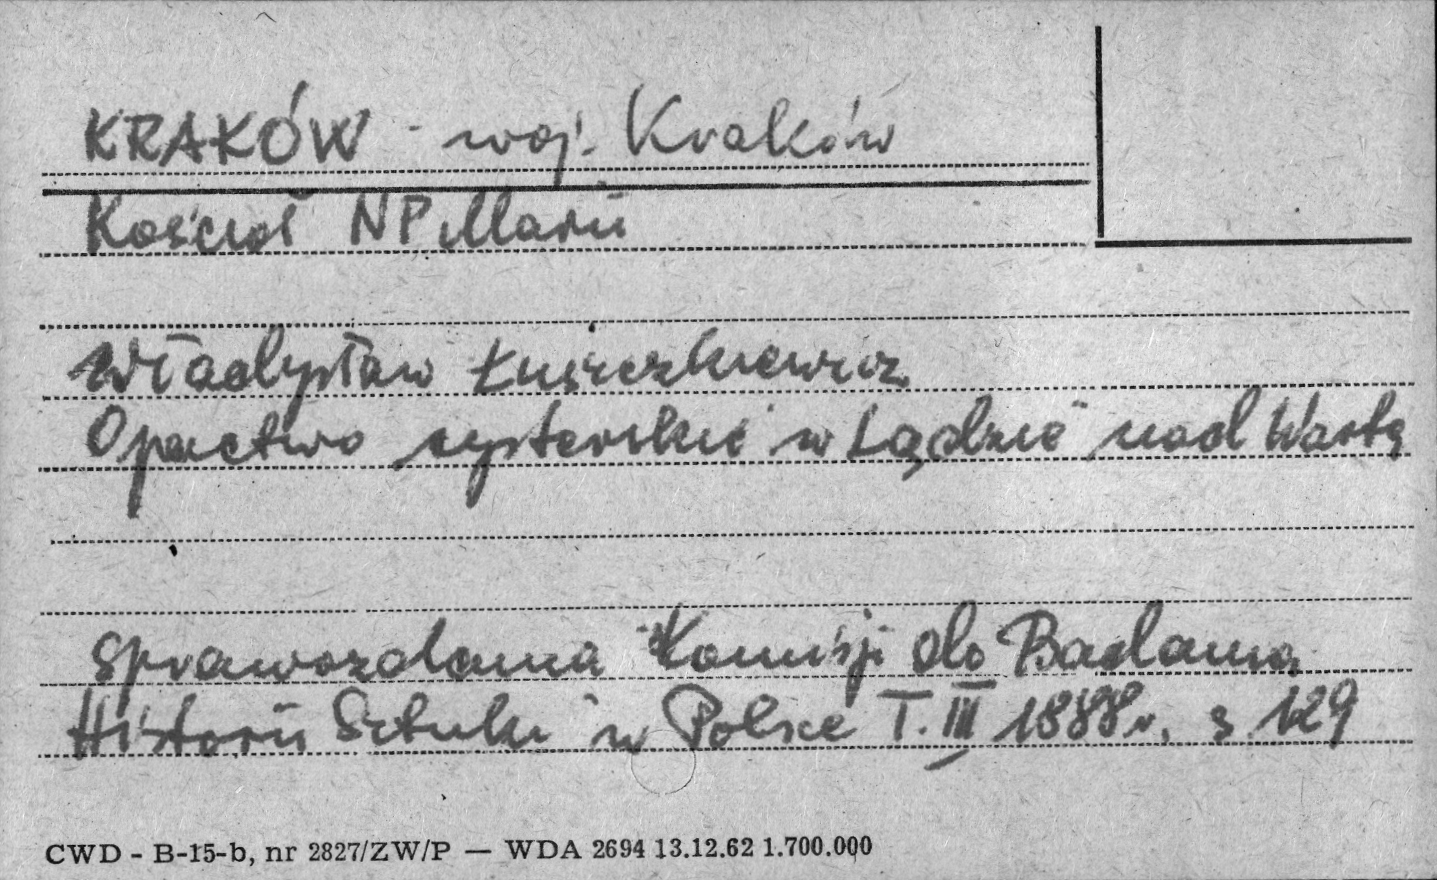 KRAKÓW - woj. Kraków
Kościół NPMarii
Władysław Łuszczkiewicz
Opactwo cysterskie w Lądzie nad Wartą
Sprawozdania Komisji do Badania
Historii Sztuki w Polsce T. III 1888r. s. 129
CWD - B-15-b, nr 2827/ZW/P — WDA 2694 13.12.62 1.700.000